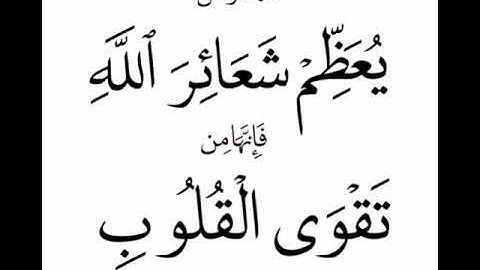 يُعَظِّمْ شَعَائِرَ ٱللَّهِ
فَإِنَّهَا مِن
تَقْوَى الْقُلُوبِ